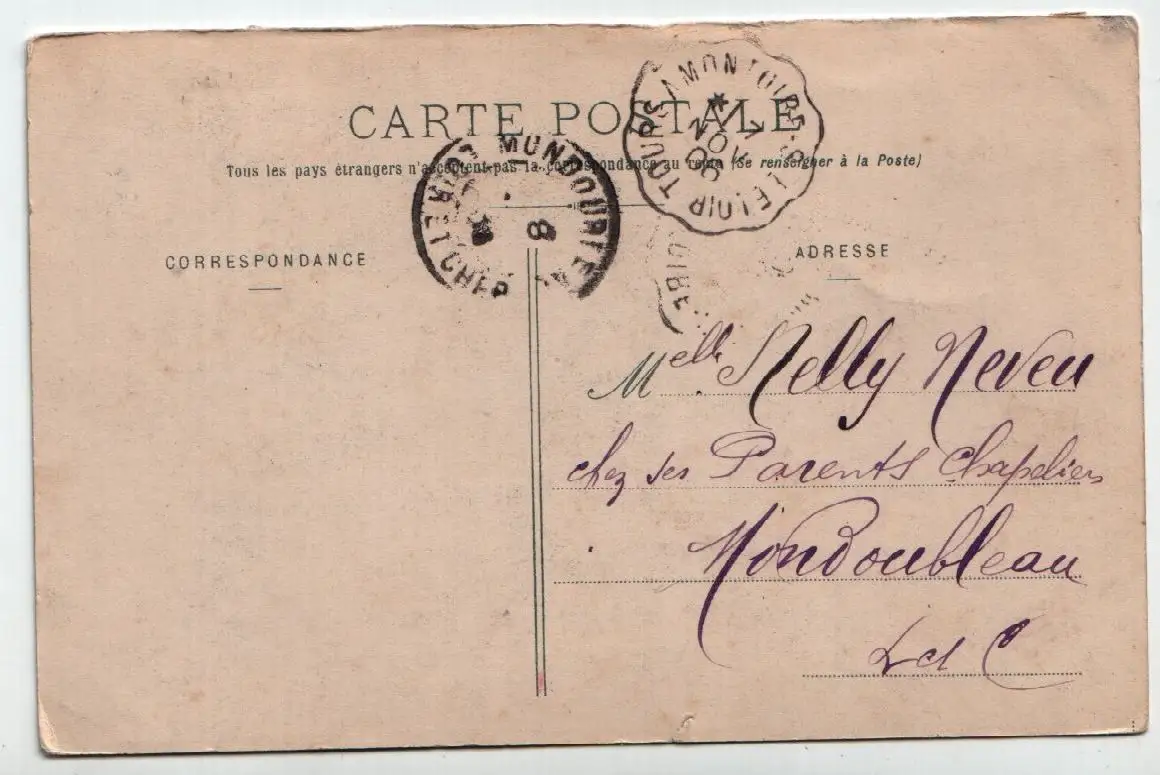 CARTE POSTALE
Tous les pays étrangers n'acceptent pas la correspondance au recto (Se renseigner à la Poste)
TOURS A MONTOIRE-S-LE LOIR
NOV
MONDOUBLEAU
LOIR ET CHER
8
CORRESPONDANCE
ADRESSE
Melle Nelly Neveu
chez ses Parents Chapeliers
Mondoubleau
L et C